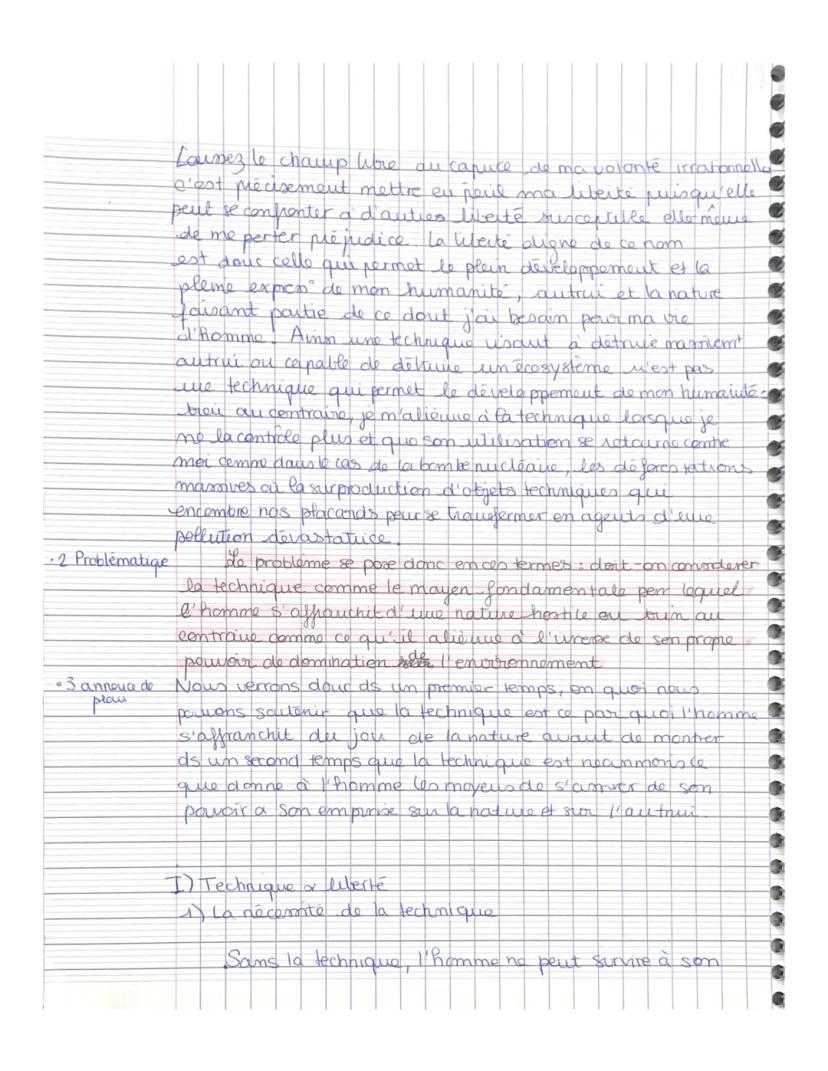 Laissez le champ libre au caprice de ma volonté irrationnelle
c'est précisement mettre en péril ma liberté puisqu'elle
peut se confronter à d'autres liberté susceptible elle même
de me porter préjudice. La liberté digne de ce nom
est donc celle qui permet le plein développement et la
pleine expres° de mon humanité, autrui et la nature
faisant partie de ce dont j'ai besoin pour ma vie
d'homme. Ainsi une technique visant à détruire massivemt
autrui ou capable de détruire un écosystème n'est pas
une technique qui permet le développement de mon humanité :
bien au contraire, je m'aliène à la technique lorsque je
ne la contrôle plus et que son utilisation se retourne contre
moi comme dans le cas de la bombe nucléaire, les déforestations
massives où la surproduction d'objets techniques qui
encombre nos placards pour se transformer en agents d'une
pollution dévastatrice.
•2 Problématique Le problème se pose donc en ces termes : doit-on considerer
la technique comme le moyen fondamentale par lequel
l'homme s'affranchit d'une nature hostile ou bien au
contraire comme ce qu'il aliène à l'ivresse de son propre
pouvoir de domination de l'environnement
•3 annonce de plan Nous verrons donc ds un premier temps, en quoi nous
pouvons soutenir que la technique est ce par quoi l'homme
s'affranchit du jou de la nature avant de montrer
ds un second temps que la technique est néanmoins ce
que donne à l'homme les moyens de s'asurer de son
pouvoir a son emprise sur la nature et sur l'autrui.
I) Technique & liberté
1) La nécessité de la technique
Sans la technique, l'homme ne peut survire à son